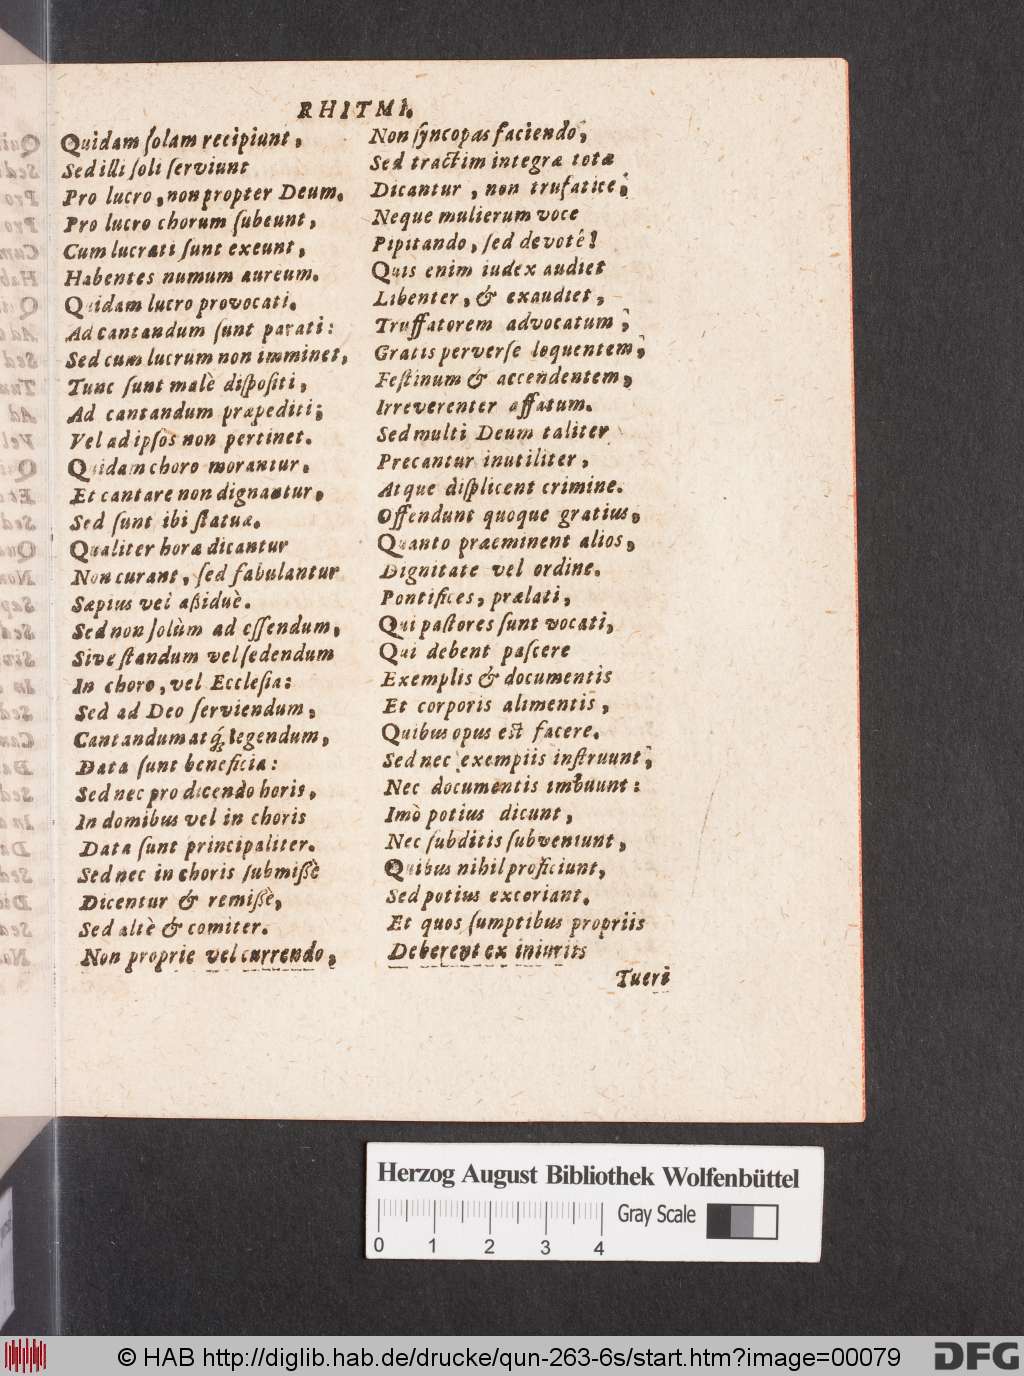 RHITMI.
Quidam ſolam recipiunt,
Sed illi ſoli ſerviunt
Pro lucro, non propter Deum.
Pro lucro chorum ſubeunt,
Cum lucrati ſunt exeunt,
Habentes numum aureum.
Quidam lucro provocati.
Ad cantandum ſunt parati:
Sed cum lucrum non imminet,
Tunc ſunt malè diſpoſiti,
Ad cantandum præpediti;
Vel ad ipſos non pertinet.
Quidam choro morantur.
Et cantare non dignantur,
Sed ſunt ibi ſtatuæ.
Qualiter horæ dicantur
Non curant, ſed fabulantur
Sæpius vel aßiduè.
Sed non ſolùm ad eſſendum,
Sive ſtandum vel ſedendum
In choro, vel Eccleſia:
Sed ad Deo ſerviendum,
Cantandum atq́; legendum,
Data ſunt beneficia:
Sed nec pro dicendo horis,
In domibus vel in choris
Data ſunt principaliter.
Sed nec in choris ſubmißè
Dicentur & remißè,
Sed altè & comiter.
Non proprie vel currendo,
Non ſyncopas faciendo,
Sed tractim integræ totæ
Dicantur, non trufaticè;
Neque mulierum voce
Pipitando, ſed devotè!
Quis enim iudex audiet
Libenter, & exaudiet,
Truffatorem advocatum;
Gratis perverſe loquentem;
Feſtinum & accendentem,
Irreverenter affatum.
Sed multi Deum taliter
Precantur inutiliter,
Atque diſplicent crimine.
Offendunt quoque gratius,
Quanto præeminent alios,
Dignitate vel ordine.
Pontifices, prælati,
Qui paſtores ſunt vocati,
Qui debent paſcere
Exemplis & documentis
Et corporis alimentis,
Quibus opus eſt facere.
Sed nec exemplis inſtruunt;
Nec documentis imbuunt:
Imò potius dicunt,
Nec ſubditis ſubveniunt,
Quibus nihil proficiunt,
Sed potius excoriant.
Et quos ſumptibus propriis
Deberent ex iniuriis
Tueri
Herzog August Bibliothek Wolfenbüttel
Gray Scale
0 1 2 3 4
© HAB http://diglib.hab.de/drucke/qun-263-6s/start.htm?image=00079
DFG